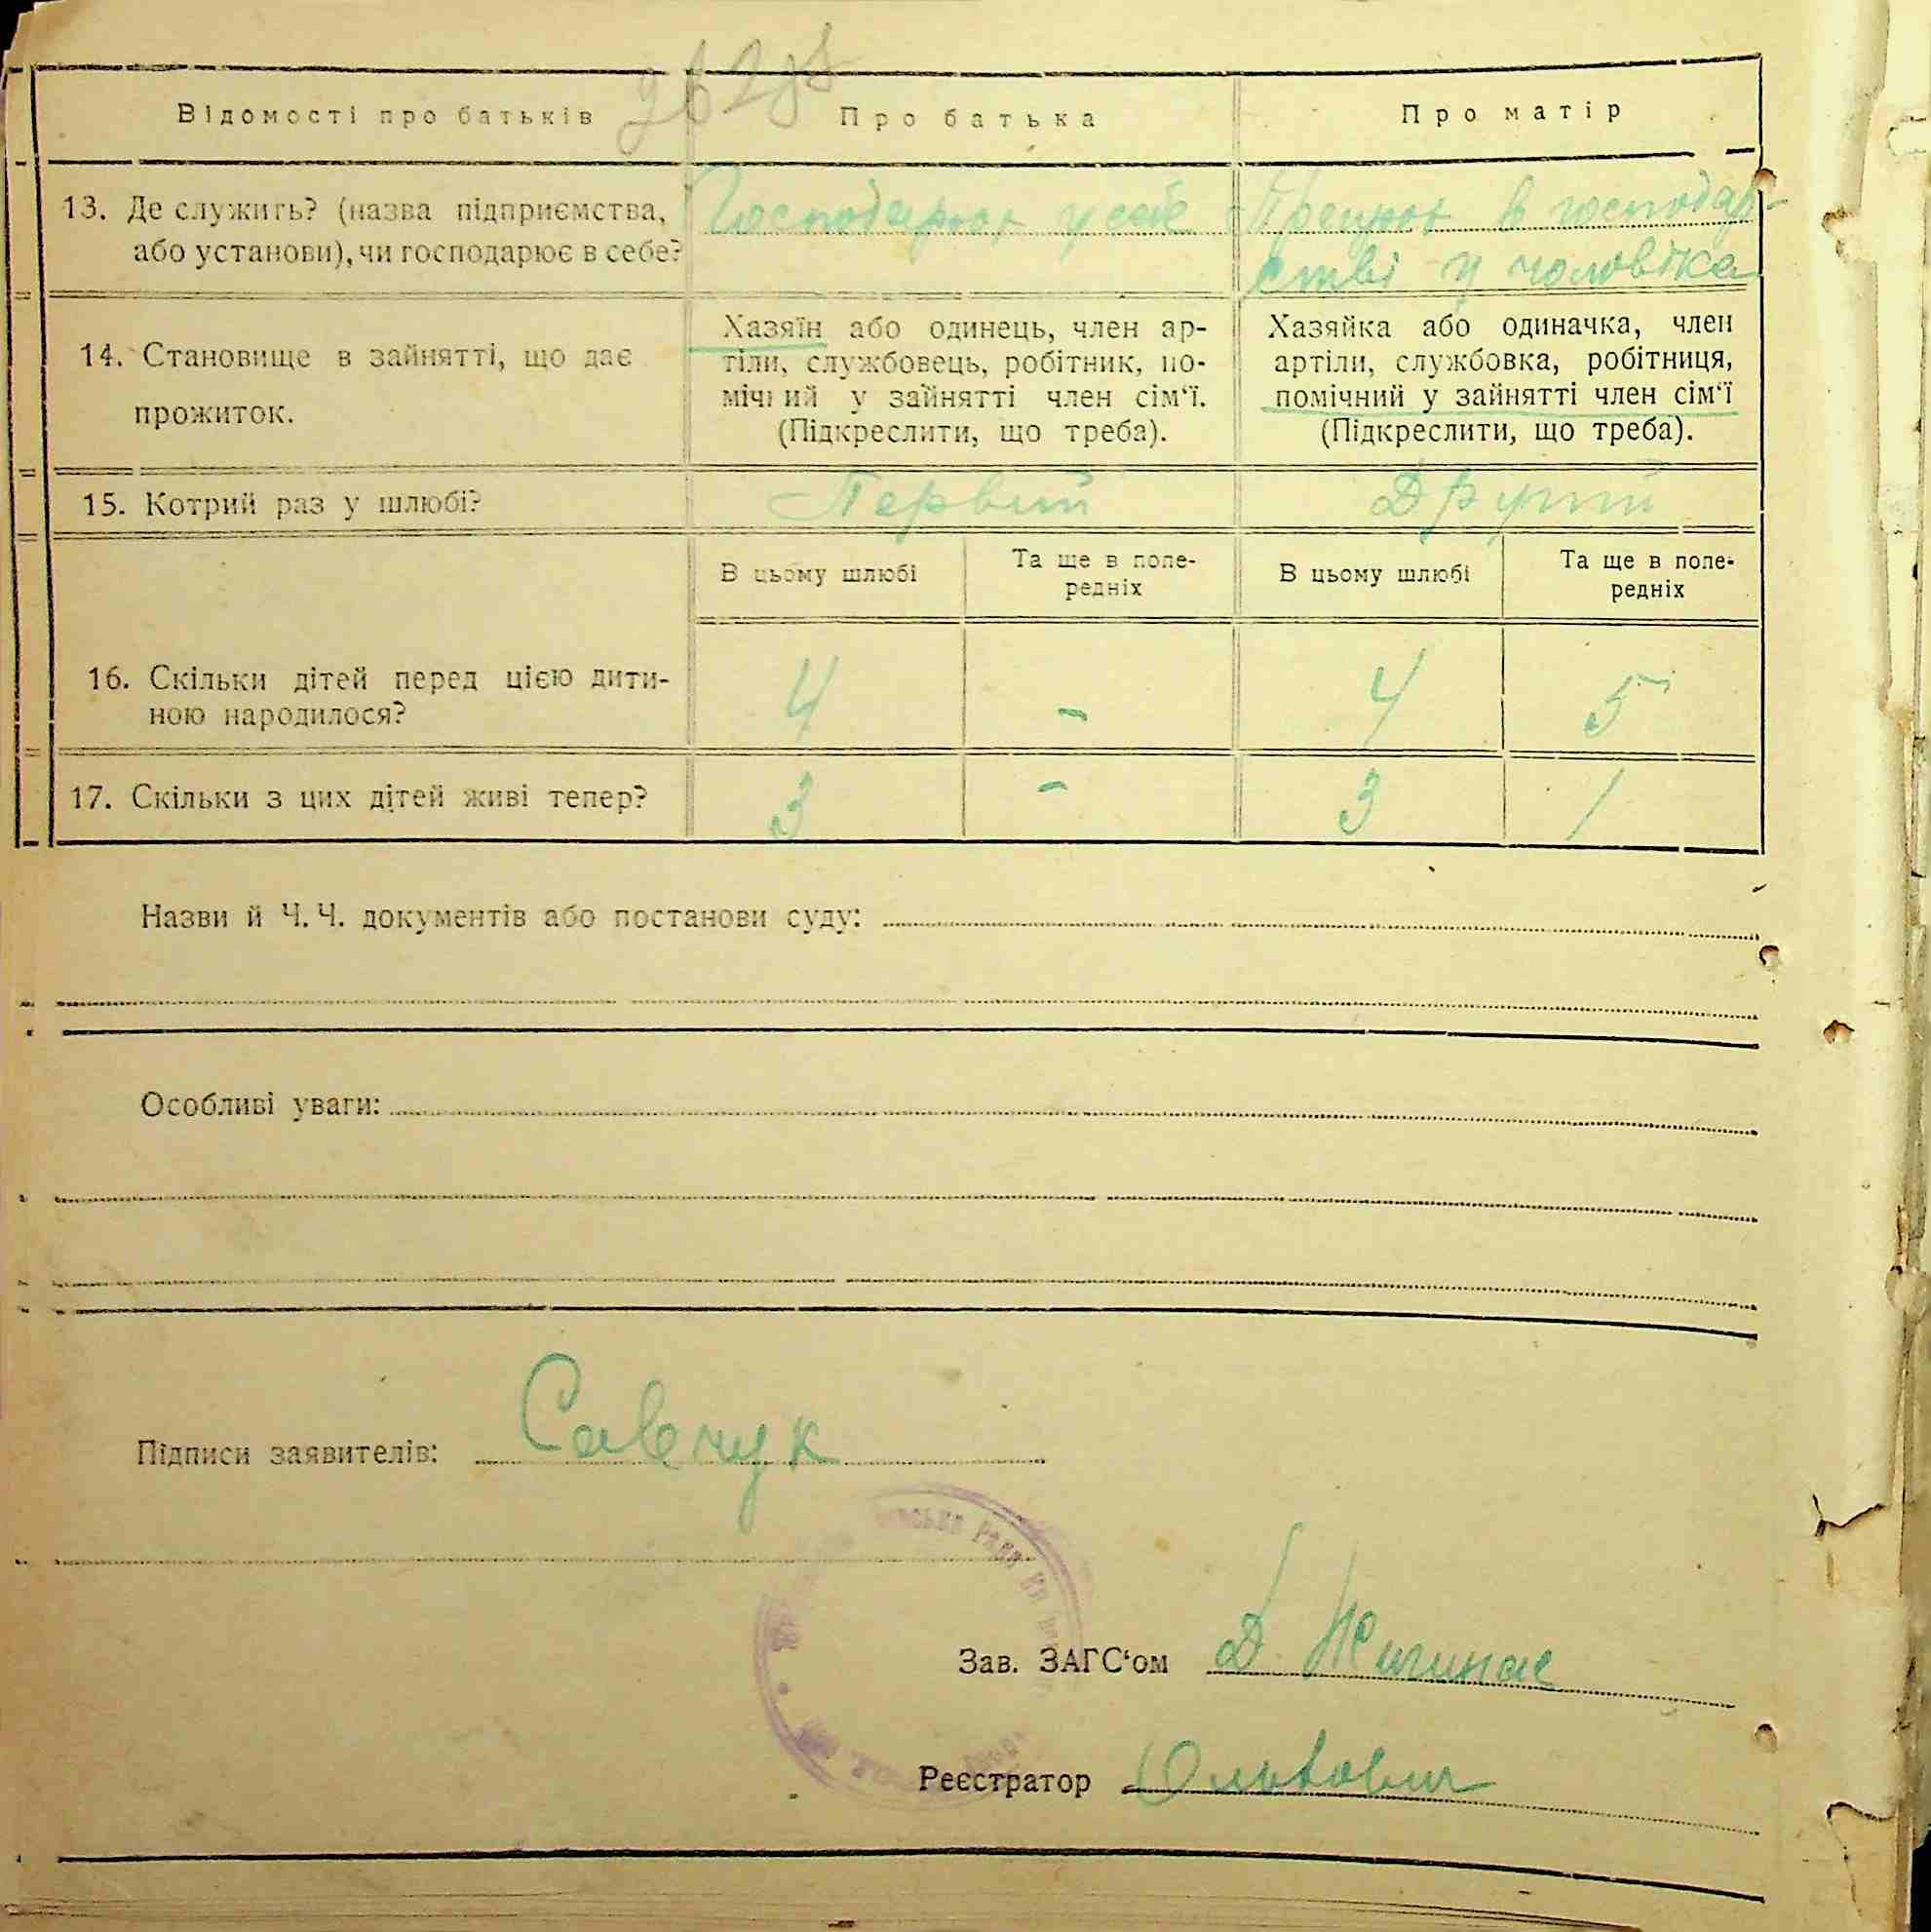 Відомості про батьків
Про батька
Про матір
13. Де служить? (назва підприємства,
або установи), чи господарює в себе?
Господарює у себе
Працює в господар-
стві у чоловіка
14. Становище в зайнятті, що дає
прожиток.
Хазяїн або одинець, член ар-
тіли, службовець, робітник, по-
мічний у зайнятті член сім‘ї.
(Підкреслити, що треба).
Хазяйка або одиначка, член
артіли, службовка, робітниця,
помічний у зайнятті член сім‘ї
(Підкреслити, що треба).
15. Котрий раз у шлюбі?
Первий
Другий
В цьому шлюбі
Та ще в попе-
редніх
В цьому шлюбі
Та ще в попе-
редніх
16. Скільки дітей перед цією дити-
ною народилося?
4 - 4 5
17. Скільки з цих дітей живі тепер?
3 - 3 1
Назви й Ч. Ч. документів або постанови суду:
Особливі уваги:
Підписи заявителів: Савчук
Рада
Зав. ЗАГС‘ом Д.
Реєстратор